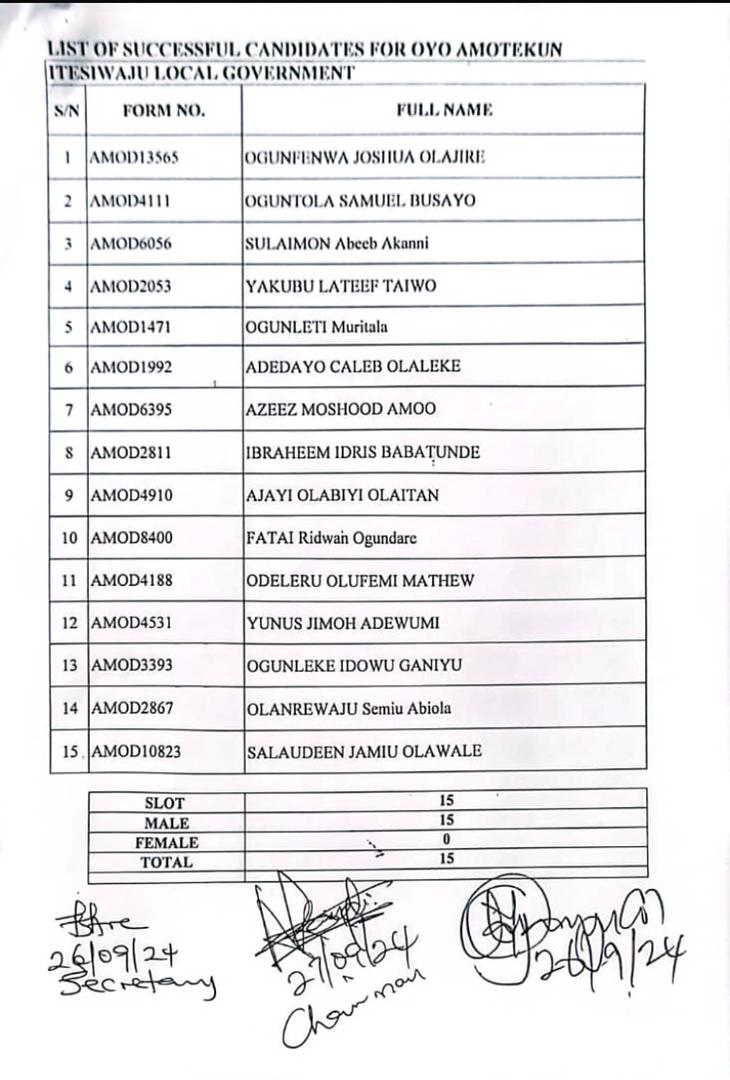 LIST OF SUCCESSFUL CANDIDATES FOR OYO AMOTEKUN
ITESIWAJU LOCAL GOVERNMENT
S/N FORM NO. FULL NAME
1 AMOD13565 OGUNFENWA JOSHUA OLAJIRE
2 AMOD4111 OGUNTOLA SAMUEL BUSAYO
3 AMOD6056 SULAIMON Abeeb Akanni
4 AMOD2053 YAKUBU LATEEF TAIWO
5 AMOD1471 OGUNLETI Muritala
6 AMOD1992 ADEDAYO CALEB OLALEKE
7 AMOD6395 AZEEZ MOSHOOD AMOO
8 AMOD2811 IBRAHEEM IDRIS BABATUNDE
9 AMOD4910 AJAYI OLABIYI OLAITAN
10 AMOD8400 FATAI Ridwan Ogundare
11 AMOD4188 ODELERU OLUFEMI MATHEW
12 AMOD4531 YUNUS JIMOH ADEWUMI
13 AMOD3393 OGUNLEKE IDOWU GANIYU
14 AMOD2867 OLANREWAJU Semiu Abiola
15 AMOD10823 SALAUDEEN JAMIU OLAWALE
SLOT 15
MALE 15
FEMALE 0
TOTAL 15
26/09/24 27/09/24 26/9/24
Secretary
Chairman